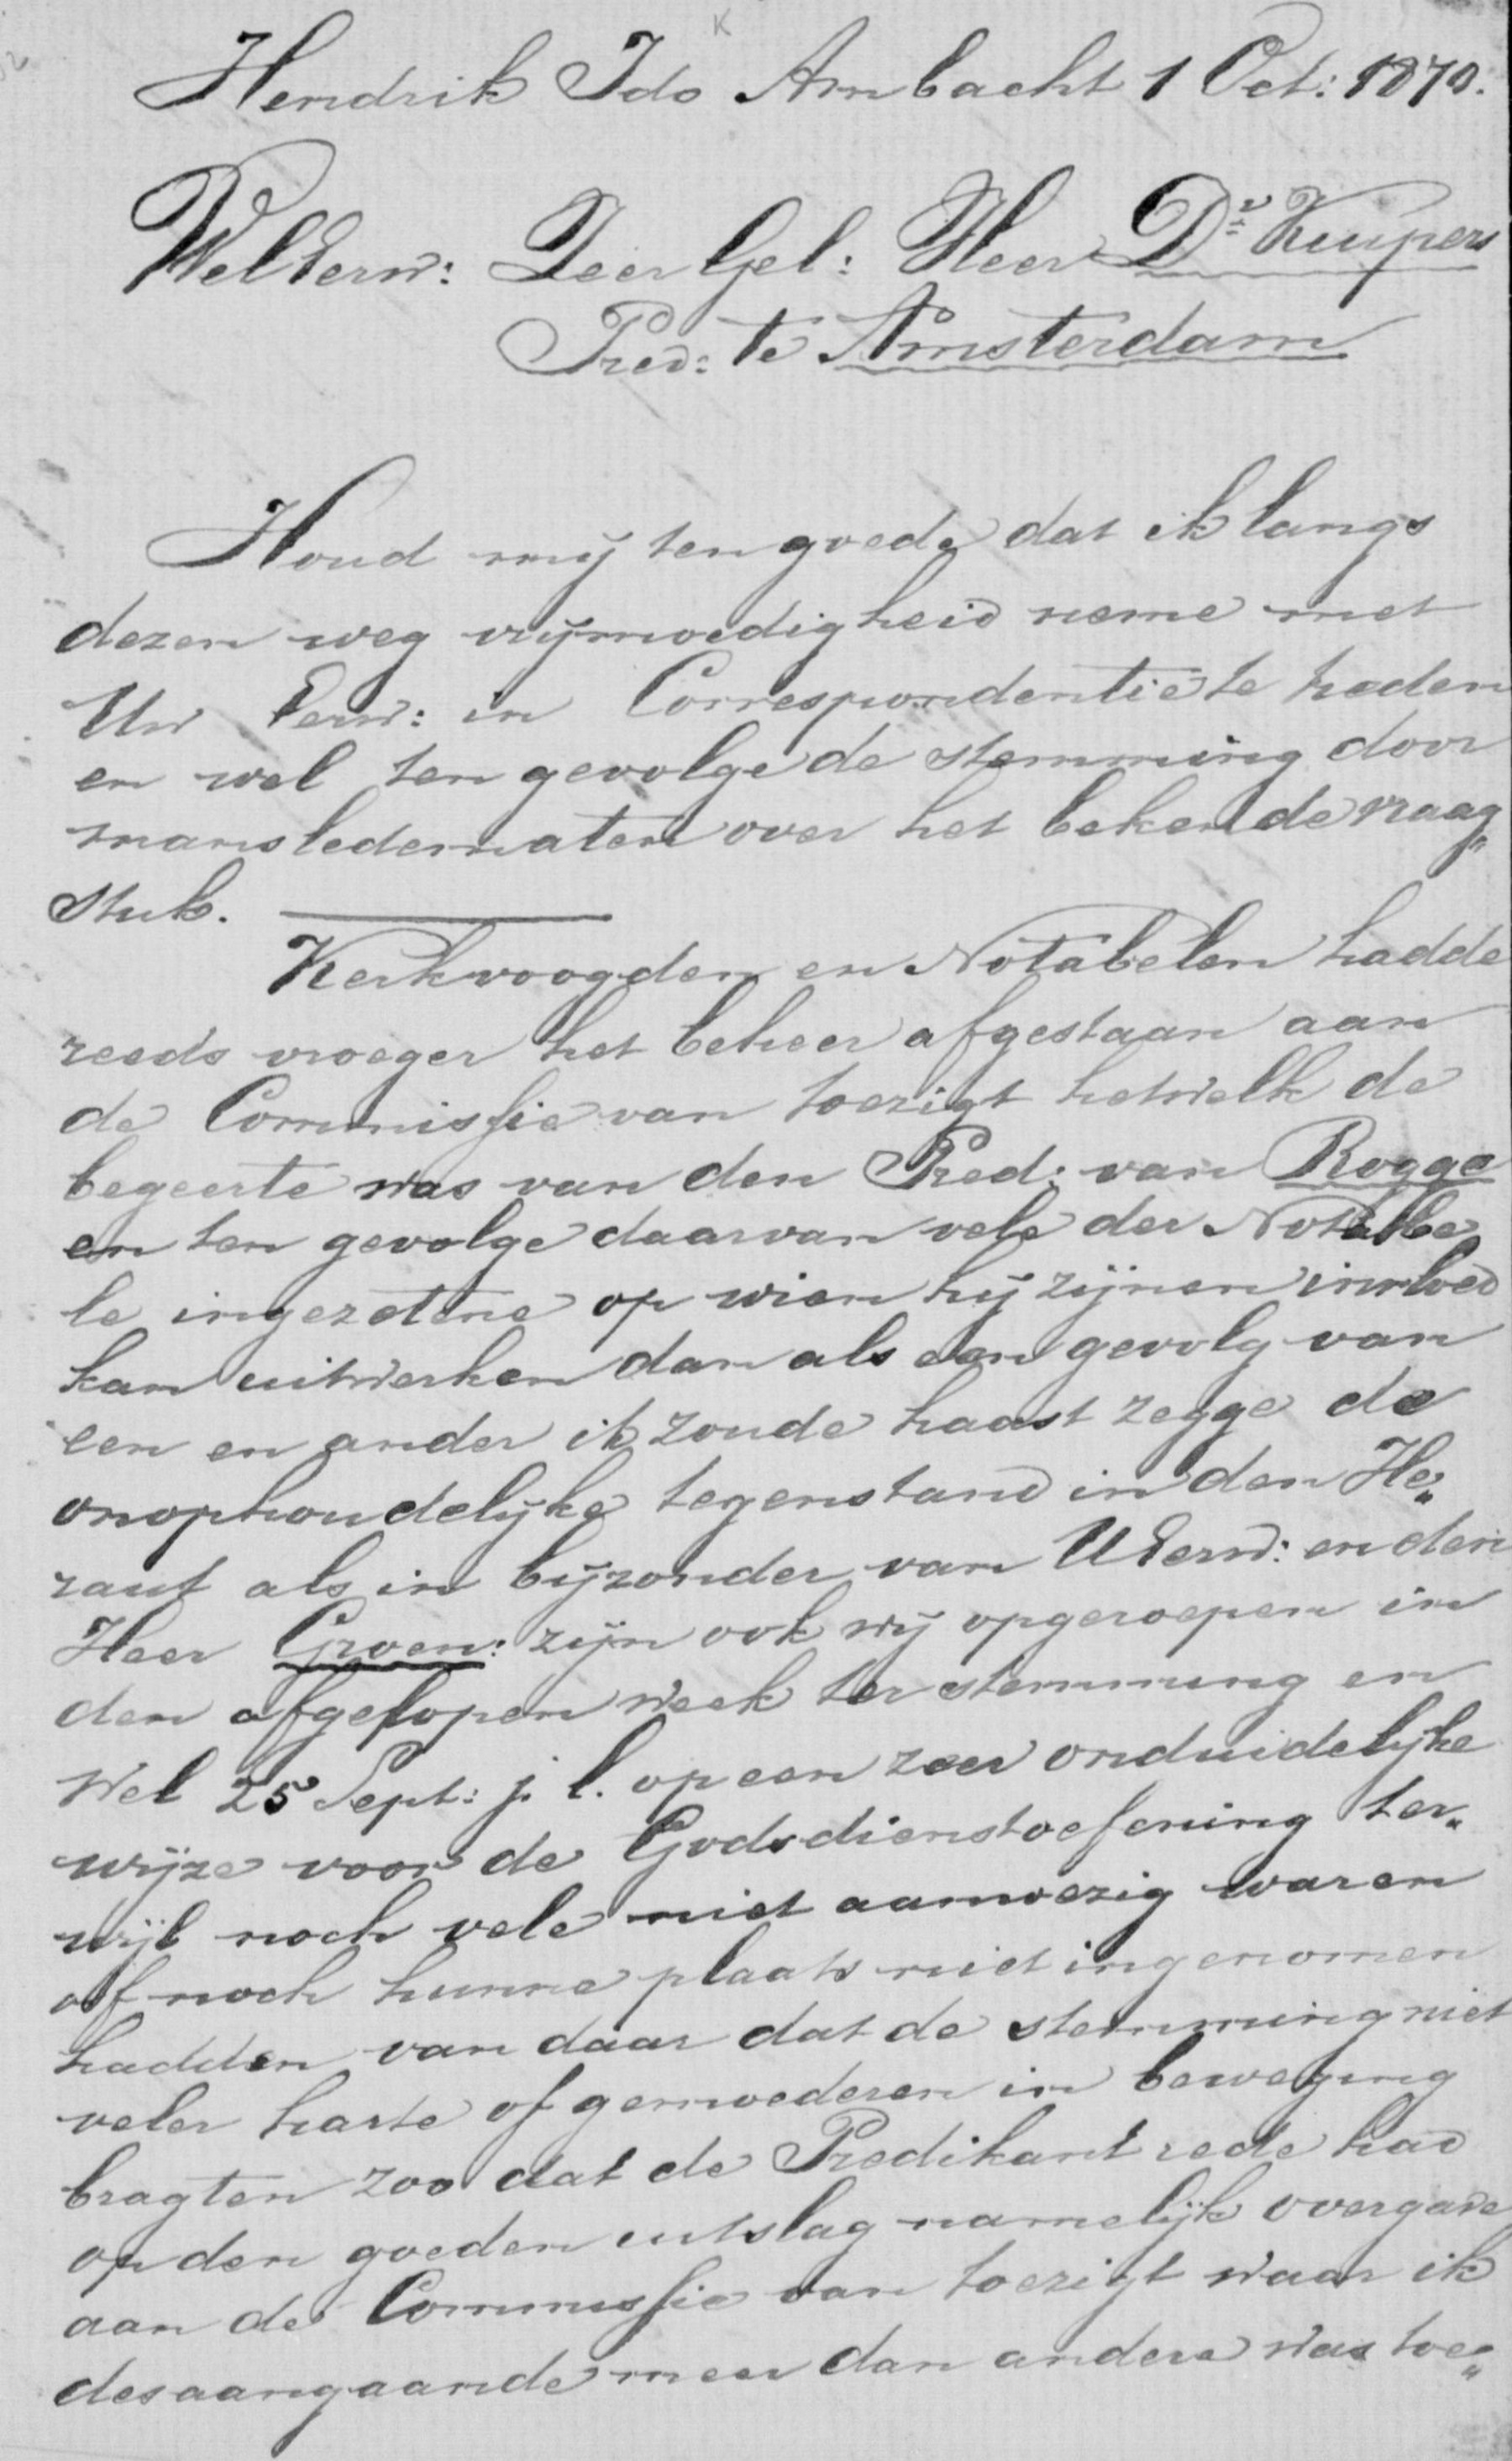 K
Hendrik Ido Ambacht 1 Oct: 1870.
WelEerw: ZeerGel: Heer Dr Kuipers
Pred: te Amsterdam
Houd mij ten goede dat ik langs
dezen weg vrijmoedigheid neme met
Uw Eerw: in Correspondentie te treden
en wel ten gevolge de stemming door
mansledematen over het bekende vraag„
stuk.
Kerkvoogden en Notabelen hadde
reeds vroeger het beheer afgestaan aan
de Commissie van toezigt hetwelk de
begeerte was van den Pred: van Rogge
en ten gevolge daarvan vele der Notabe
le ingezetene op wien hij zijnen invloed
kan uitwerken dan als een gevolg van
een en ander ik zoude haast zegge de
onophoudelijke tegenstand in den He„
raut als in bijzonder van UEerw: en den
Heer Groen: zijn ook wij opgeroepen in
den afgelopen week ter stemming en
wel 25 Sept: j. l. op een zeer onduidelijke
wijze voor de Godsdienstoefening ter„
wijl noch vele niet aanwezig waren
of noch hunne plaats niet ingenomen
hadden van daar dat de stemming niet
veler harte of gemoederen in beweging
bragten zoo dat de Predikant rede had
op den goeden uitslag namelijk overgave
aan de Commissie van toezigt waar ik
desaangaande meer dan andere was toe„